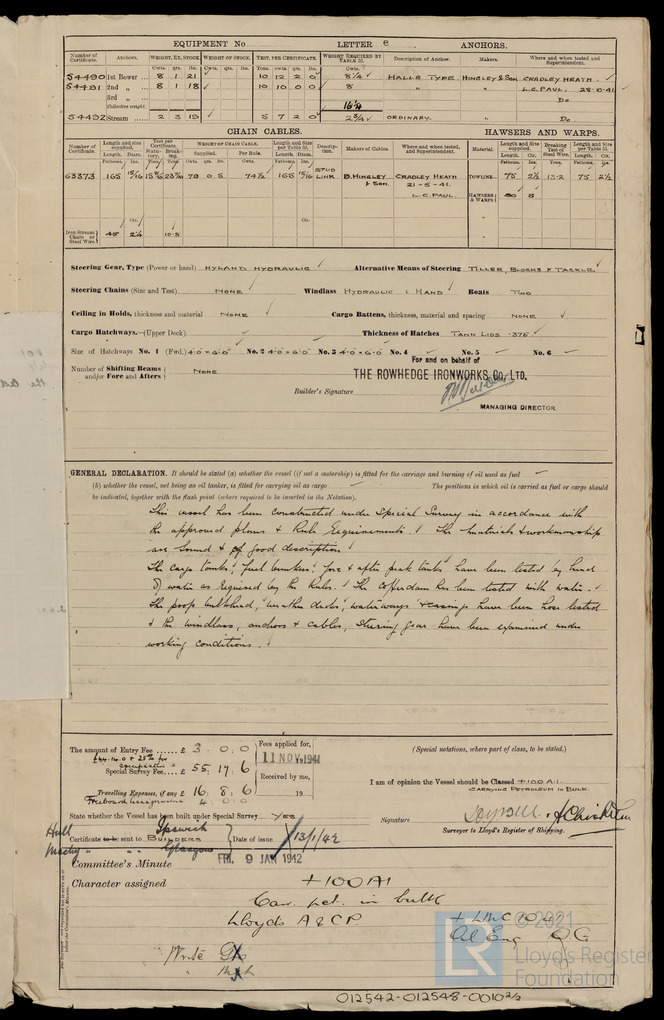 EQUIPMENT No LETTER e ANCHORS.
Number of Certificate. Anchors. WEIGHT, EX. STOCK. WEIGHT OF STOCK. TEST, PER CERTIFICATE. WEIGHT REQUIRED BY TABLE 31. Description of Anchor. Makers. Where and when tested and Superintendent.
Cwts. qrs. lbs. Cwts. qrs. lbs. Tons. cwts. qrs. lbs. Cwts.
54490 1st Bower 8 1 21 ✓ 10 12 2 0 8 1/4 ✓ HALLS TYPE. HINGLEY & SON. CRADLEY HEATH. ✓
54491 2nd „ 8 1 18 ✓ 10 10 0 0 8 „ „ L.C. PAUL. 28-10-41.
3rd „ Do
Collective weight. 16 1/4
54492 Stream 2 3 19 ✓ 5 7 2 0 2 3/4 ✓ ORDINARY. „ Do.
CHAIN CABLES. HAWSERS AND WARPS.
Number of Certificate. Length and size supplied. Test per Certificate. WEIGHT OF CHAIN CABLE. Length and size per Table 31. Description. Makers of Cables. Where and when tested, and Superintendent. Material. Length and Size supplied. Breaking Test of Steel Wire. Length and size per Table 31.
Length. Diam. Statutory. Breaking. Supplied. Per Rule. Length. Diam. Length. Cir. Length. Cir.
Fathoms Ins. Tons Tons Cwts. qrs. lbs Cwts. Fathoms Ins. Fathoms Ins. Tons. Fathoms Ins.
63373 165 15/16 79 0 5 74 1/2 ✓ 165 15/16 STUD LINK B. HINGLEY & SON. CRADLEY HEATH 21-5-41. L.C. PAUL. TOWLINE 75 2 1/2 13·2 75 2 1/2
HAWSERS & WARPS 90 5
Iron Stream Chain or Steel Wire 45 2 1/4 10·5
Steering Gear, Type (Power or hand) HYLAND HYDRAULIC ✓ Alternative Means of Steering TILLER, BLOCKS & TACKLE ✓
Steering Chains (Size and Test) NONE ✓ Windlass HYDRAULIC & HAND ✓ Boats TWO
Ceiling in Holds, thickness and material NONE ✓ Cargo Battens, thickness, material and spacing NONE ✓
Cargo Hatchways.—(Upper Deck) ✓ Thickness of Hatches TANK LIDS ·375 ✓
Size of Hatchways No. 1 (Fwd.) 4'-0" × 6'-0" No. 2 4'-0" × 6'-0" No. 3 4'-0" × 6'-0" No. 4 No. 5 No. 6
Number of Shifting Beams and/or Fore and Afters NONE For and on behalf of
THE ROWHEDGE IRONWORKS Co., LTD.
Builder's Signature
MANAGING DIRECTOR.
GENERAL DECLARATION. It should be stated (a) whether the vessel (if not a motorship) is fitted for the carriage and burning of oil used as fuel
(b) whether the vessel, not being an oil tanker, is fitted for carrying oil as cargo The positions in which oil is carried as fuel or cargo should
be indicated, together with the flash point (where required to be inserted in the Notation).
This vessel has been constructed under Special Survey in accordance with
the approved plans & Rule Requirements. ✓ The materials & workmanship
are sound & of good description. ✓
The cargo tanks, fuel bunkers, fore & after peak tanks have been tested by head
of water as required by the Rules. ✓ The cofferdam has been tested with water. ✓
The poop bulkhead, weather decks, waterways & casings have been hose tested
& the windlass, anchors & cables, steering gear have been examined under
working conditions. ✓
The amount of Entry Fee £ 3 : 0 : 0 Fees applied for, (Special notations, where part of class, to be stated.)
11 NOV 1941
Special Survey Fee £ 55 : 17 : 6 Received by me,
Travelling Expenses, if any £ 16 : 8 : 6 19
Freeboard assignment 4 : 0 : 0
I am of opinion the Vessel should be Classed +100 A.1.
CARRYING PETROLEUM IN BULK.
State whether the Vessel has been built under Special Survey Yes Signature
Surveyor to Lloyd's Register of Shipping.
Hull Ipswich
Certificate to be sent to BUILDERS Date of issue 13/1/42
Machy „ „ Glasgow
FRI. 9 JAN 1942
Committee's Minute
Character assigned +100A1
Carr. pet. in bulk
Lloyds A & CP. + LMC 10,41
Oil Eng OG
Write
© 2021
LR Lloyd's Register Foundation
012542-012548-0010 2/2